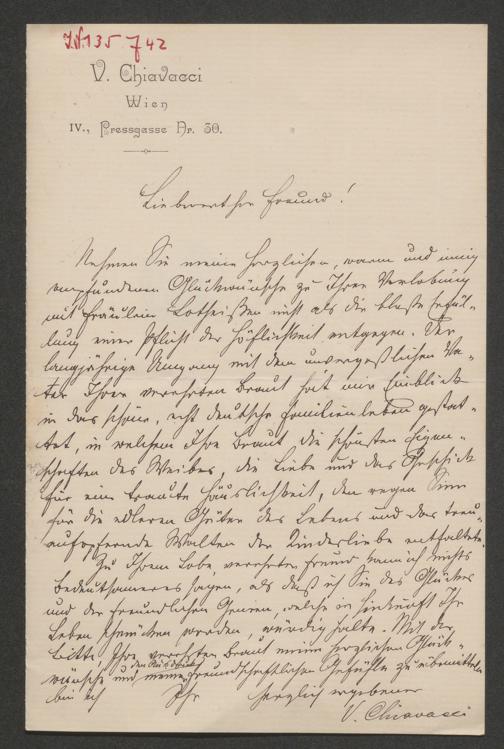 I.N. 135 742
V. Chiavacci
Wien
IV., Pressgasse Nr. 30.
Liebwerther Freund!
Nehmen Sie meine herzlichen, warm und innig
empfundenen Glückwünsche zu Ihrer Verlobung
mit Fräulein Lotheißen nicht als die bloße Erfül-
lung einer Pflicht der Höflichkeit entgegen. Der
langjährige Umgang mit dem unvergeßlichen Va-
ter Ihrer verehrten Braut hat mir Einblick
in das schöne, echt deutsche Familienleben gestat-
tet, in welchem Ihre Braut, die schönsten Eigen-
schaften des Weibes, die Liebe und das Geschick
für eine traute Häuslichkeit, den regen Sinn
für die edleren Güter des Lebens und das treu-
aufopfernde Walten der Kinderliebe entfaltete.
Zu Ihrem Lobe, verehrter Freund kann ich nichts
Bedeutsameres sagen, als daß ich Sie des Glückes
und der freundlichen Genien, welche in Hinkunft Ihr
Leben schmücken werden, würdig halte. Mit der
Bitte Ihrer verehrten Braut meine herzlichen Glück-
wünsche und den Ausdruck meiner freundschaftlichen Gefühle zu übermitteln
bin ich Ihr herzlich ergebener
V. Chiavacci